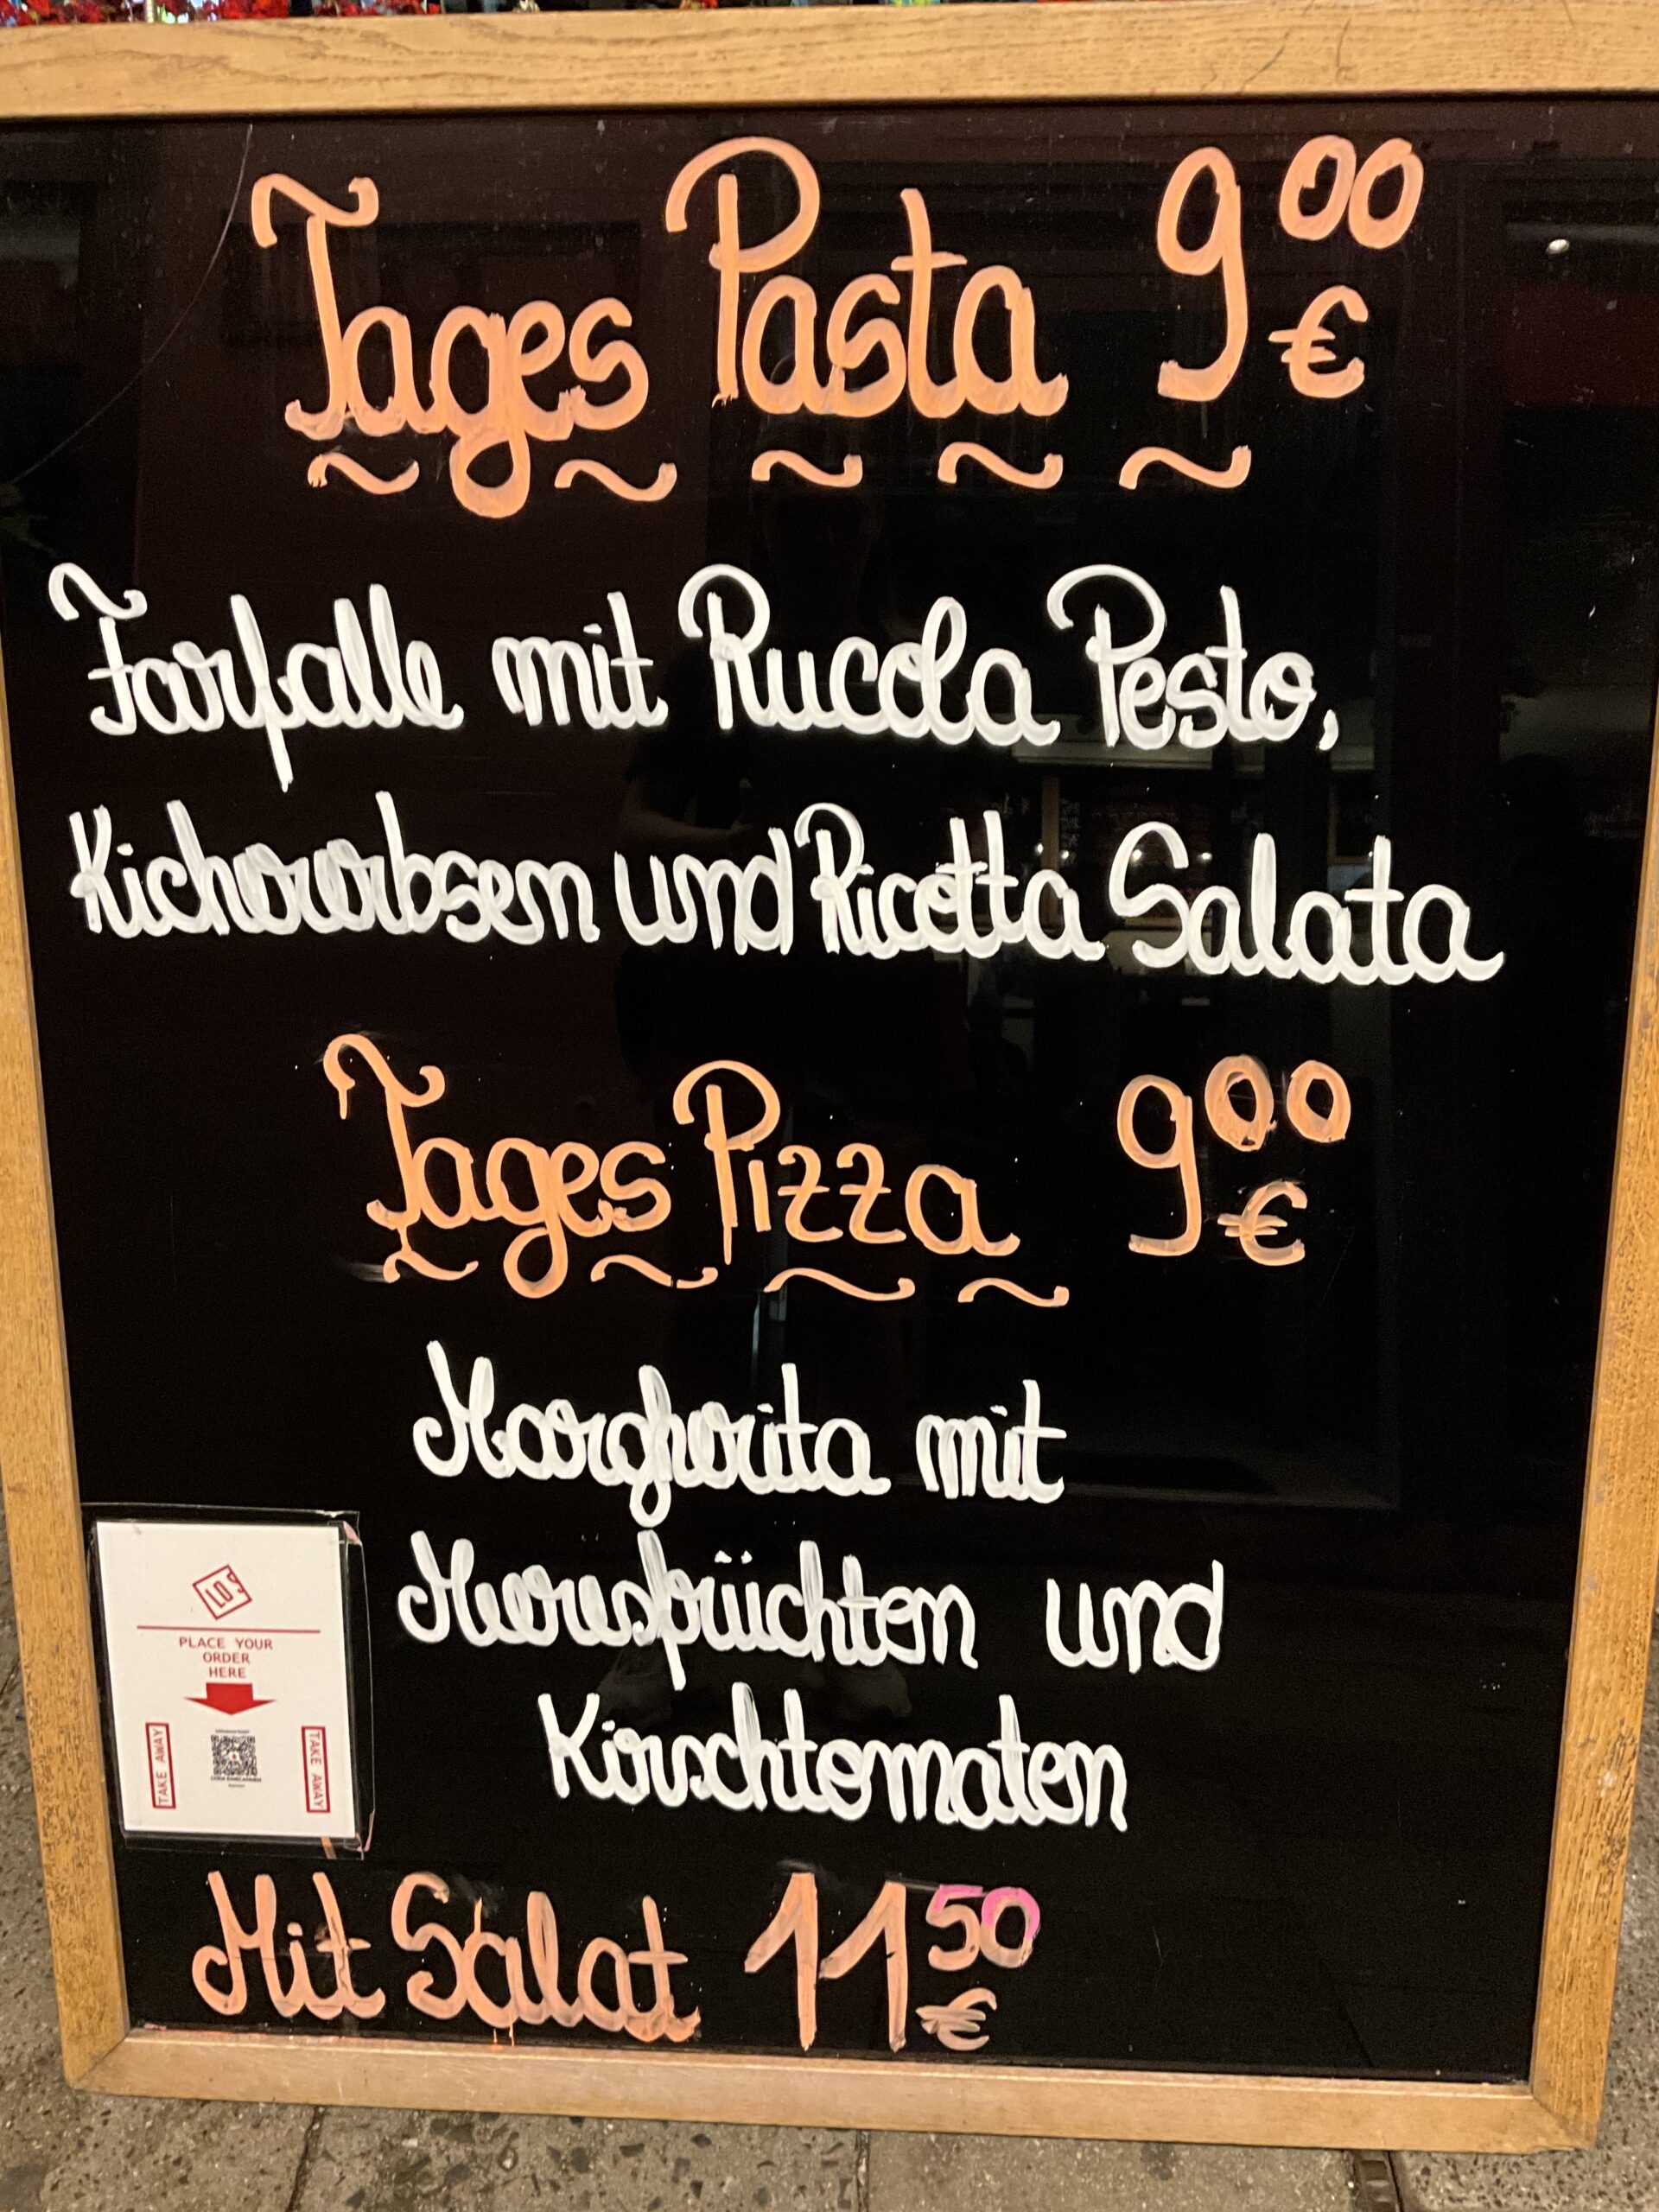 Tages Pasta 9 00 €
Farfalle mit Rucola Pesto,
Kichererbsen und Ricotta Salata
Tages Pizza 9 00 €
Margherita mit
Meeresfrüchten und
Kirschtomaten
Mit Salat 11 50 €
LOS
PLACE YOUR
ORDER
HERE
TAKE AWAY
TAKE AWAY